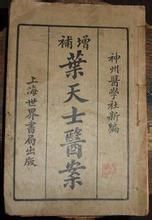 增補
神州醫學社新編
葉天士醫案
上海世界書局出版